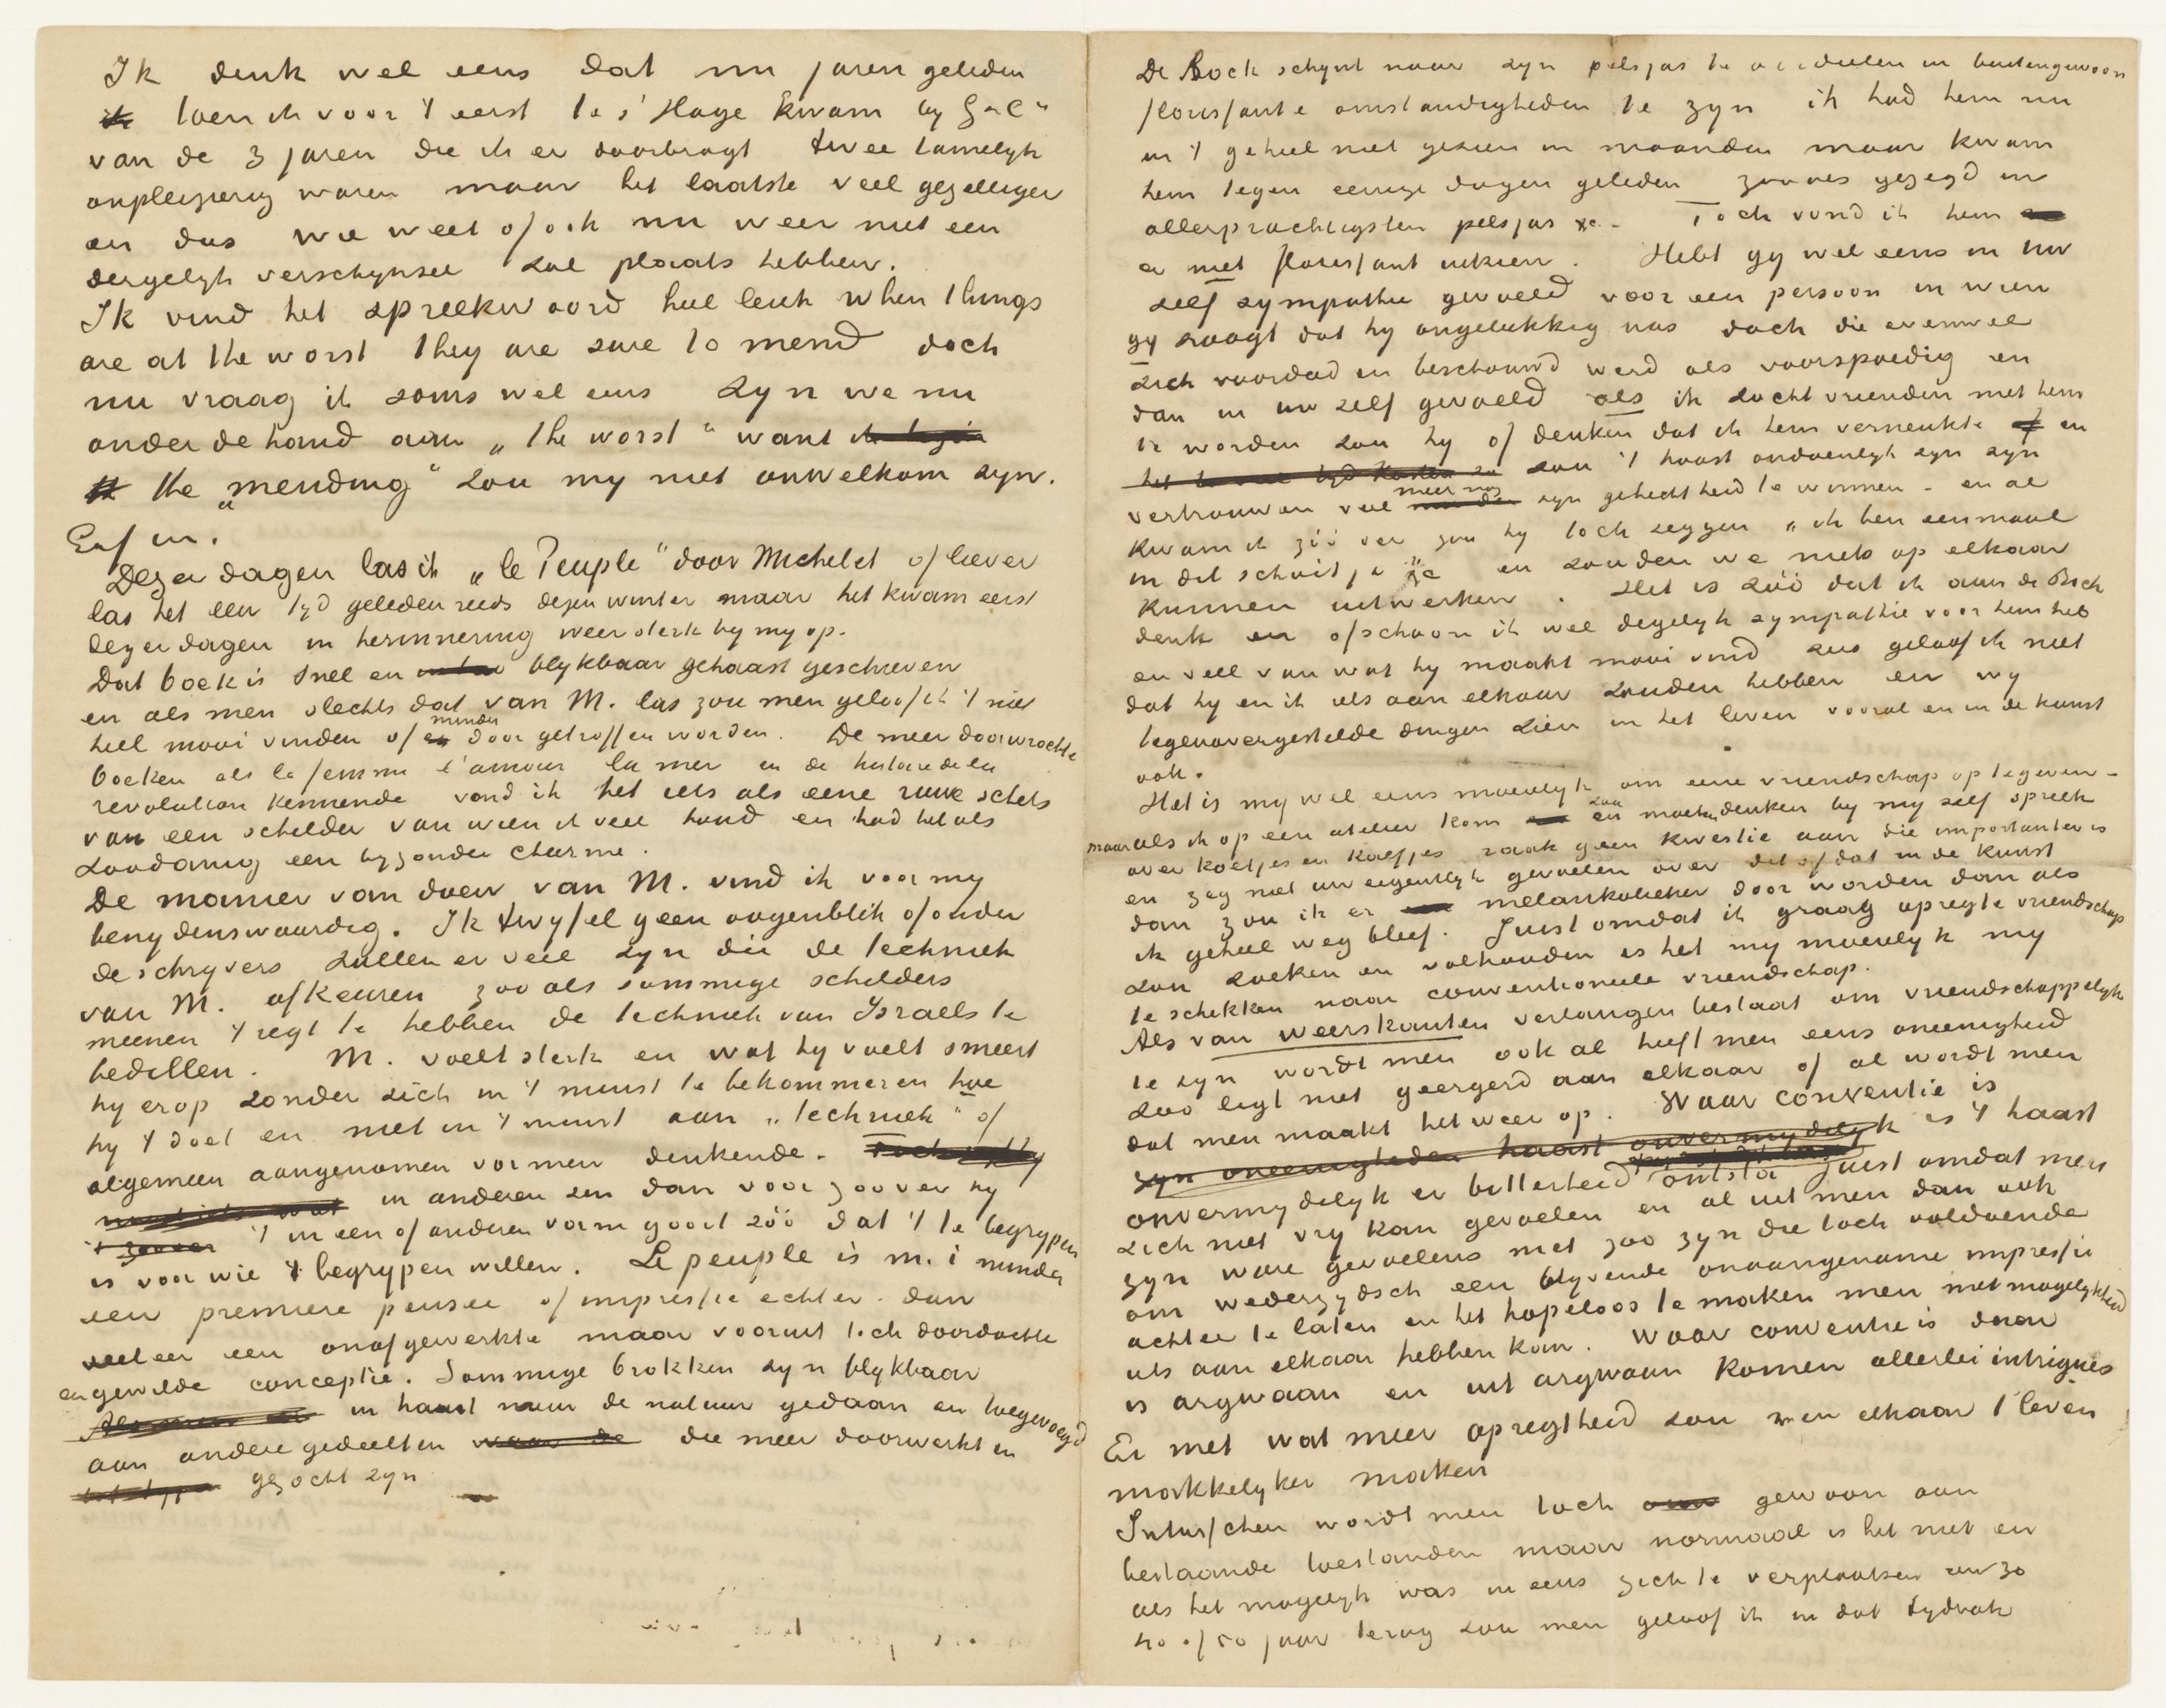 Ik denk wel eens dat nu jaren geleden
toen ik voor 't eerst te s' Hage kwam by G & C°
van de 3 jaren die ik er doorbragt twee tamelyk
onpleizierig waren maar het laatste veel gezelliger
en dus wie weet of ook nu weer niet een
dergelyk verschynsel zal plaats hebben.
Ik vind het spreekwoord heel leuk when things
are at the worst they are sure to mend doch
nu vraag ik soms wel eens zyn we nu
onderdehand aan „the worst" want
the „mending" zou my niet onwelkom zyn.
Enfin.
Dezer dagen las ik „le Peuple" door Michelet of liever
las het een tyd geleden reeds dezen winter maar het kwam eerst
dezer dagen in herinnering weer sterk by my op.
Dat boek is snel en blykbaar gehaast geschreven
en als men slechts dat van M. las zou men geloof ik 't niet
heel mooi vinden of minder door getroffen worden. De meer doorwrochte
boeken als la femme l'amour la mer en de histoire de la
revolution kennende vond ik het iets als eene ruwe schets
van een schilder van wien ik veel houd en had het als
zoodanig een byzonder charme.
De manier van doen van M. vind ik voor my
benydenswaardig. Ik twyfel geen oogenblik of onder
de schryvers zullen er veel zyn die de techniek
van M. afkeuren zooals sommige schilders
meenen 't regt te hebben de techniek van Israels te
bedillen. M. voelt sterk en wat hy voelt smeert
hy erop zonder zich in 't minst te bekommeren hoe
hy 't doet en niet in 't minst aan „techniek" of
algemeen aangenomen vormen denkende.
in anderen zin dan voor zoover hy
't in een of anderen vorm gooit zóó dat 't te begrypen
is voor wie 't begrypen willen. Le peuple is m. i minder
een premiere pensee of impressie echter dan
veeleer een onafgewerkte maar vooruit toch doordachte
en gewilde conceptie. Sommige brokken zyn blykbaar
in haast naar de natuur gedaan en toegevoegd
aan andere gedeelten die meer doorwerkt en
gezocht zyn
De Bock schynt naar zyn pelsjas te oordeelen in buitengewoon
florissante omstandigheden te zyn ik had hem nu
in 't geheel niet gezien in maanden maar kwam
hem tegen eenige dagen geleden zooals gezegd in
allerprachtigsten pelsjas &c. - Toch vond ik hem
er niet florissant uitzien. Hebt gy wel eens in uw
zelf sympathie gevoeld voor een persoon in wien
gy zaagt dat hy ongelukkig was doch die evenwel
zich voordeed en beschouwd werd als voorspoedig en
dan in uw zelf gevoeld als ik zocht vrienden met hem
te worden zou hy of denken dat ik hem verneukte en
zou 't haast ondoenlyk zyn zyn
vertrouwen veel meer nog zyn gehechtheid te winnen - en al
kwam ik zóó ver zou hy toch zeggen „ik ben eenmaal
in dit schuitje" &c en zouden we niets op elkaar
kunnen uitwerken. Het is zóó dat ik aan de Bock
denk en ofschoon ik wel degelyk sympathie voor hem heb
en veel van wat hy maakt mooi vind zus geloof ik niet
dat hy en ik iets aan elkaar zouden hebben en wy
tegenovergestelde dingen zien in het leven vooral en in de kunst
ook.
Het is my wel eens moeielyk om eene vriendschap op te geven -
maar als ik op een atelier kom en zou moeten denken by my zelf spreek
over koetjes en kalfjes raak geen kwestie aan die importanter is
en zeg niet uw eigentlyk gevoelen over dit of dat in de kunst
dan zou ik er melankolieker door worden dan als
ik geheel weg bleef. Juist omdat ik graag opregte vriendschap
zou zoeken en volhouden is het my moeielyk my
te schikken naar conventioneele vriendschap.
Als van weerskanten verlangen bestaat om vriendschappelyk
te zyn wordt men ook al heeft men eens oneenigheid
zoo ligt niet geergerd aan elkaar of al wordt men
dat men maakt het weer op. Waar conventie is
zyn oneenigheden haast onvermydelyk is 't haast
onvermydelyk er bitterheid ontsta juist omdat men
zich niet vry kan gevoelen en al uit men dan ook
zyn ware gevoelens niet zoo zyn die toch voldoende
om wederzydsch een blyvende onaangename impressie
achter te laten en het hopeloos te maken men niet mogelykheid
iets aan elkaar hebben kan. Waar conventie is daar
is argwaan en uit argwaan komen allerlei intrigues
En met wat meer opregtheid zou men elkaar 't leven
makkelyker maken
Intusschen wordt men toch gewoon aan
bestaande toestanden maar normaal is het niet en
als het mogelyk was in eens zich te verplaatsen een 30
40 of 50 jaar terug zou men geloof ik in dat tydvak